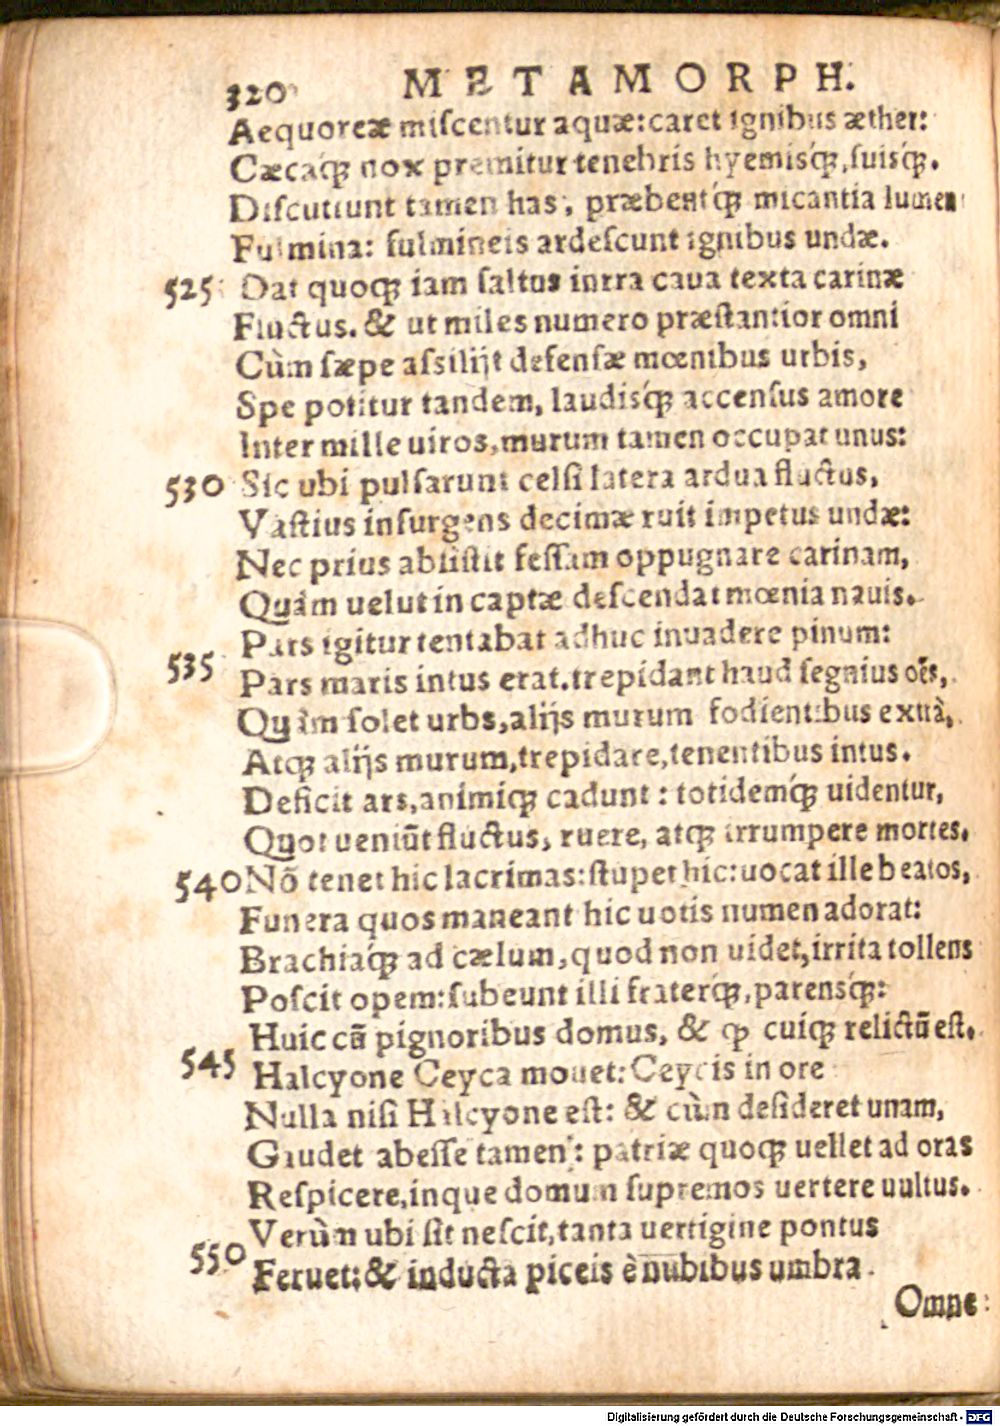 320 METAMORPH.
Aequoreæ miſcentur aquæ: caret ignibus æther:
Cæcaq́ꝫ nox premitur tenebris hyemisq́ꝫ, ſuisq́ꝫ.
Diſcutiunt tamen has, præbentq́ꝫ micantia lumen
Fulmina: fulmineis ardeſcunt ignibus undæ.
525 Dat quoqꝫ iam ſaltus intra caua texta carinæ
Fluctus. & ut miles numero præſtantior omni
Cùm ſæpe aſsilijt defenſæ mœnibus urbis,
Spe potitur tandem, laudisq́ꝫ accenſus amore
Inter mille uiros, murum tamen occupat unus:
530 Sic ubi pulſarunt celſi latera ardua fluctus,
Vaſtius inſurgens decimæ ruit impetus undæ:
Nec prius abſiſtit feſſam oppugnare carinam,
Quàm uelut in captæ deſcendat mœnia nauis.
Pars igitur tentabat adhuc inuadere pinum:
535 Pars maris intus erat. trepidant haud ſegnius oẽs,
Quàm ſolet urbs, alijs murum fodientibus extrà,
Atqꝫ alijs murum, trepidare, tenentibus intus.
Deficit ars, animiqꝫ cadunt: totidemq́ꝫ uidentur,
Quot ueniũt fluctus, ruere, atqꝫ irrumpere mortes.
540 Nõ tenet hic lacrimas: ſtupet hic: uocat ille beatos,
Funera quos maneant hic uotis numen adorat:
Brachiaq́ꝫ ad cælum, quod non uidet, irrita tollens
Poſcit opem: ſubeunt illi fraterq́ꝫ, parensq́ꝫ:
Huic cũ pignoribus domus, & ꝙ cuiqꝫ relictũ eſt.
545 Halcyone Ceyca mouet: Ceycis in ore
Nulla niſi Halcyone eſt: & cùm deſideret unam,
Gaudet abeſſe tamen: patriæ quoqꝫ uellet ad oras
Reſpicere, inque domum ſupremos uertere uultus.
Verùm ubi ſit neſcit, tanta uertigine pontus
550 Feruet: & inducta piceis è nubibus umbra
Omne
Digitalisierung gefördert durch die Deutsche Forschungsgemeinschaft - DFG